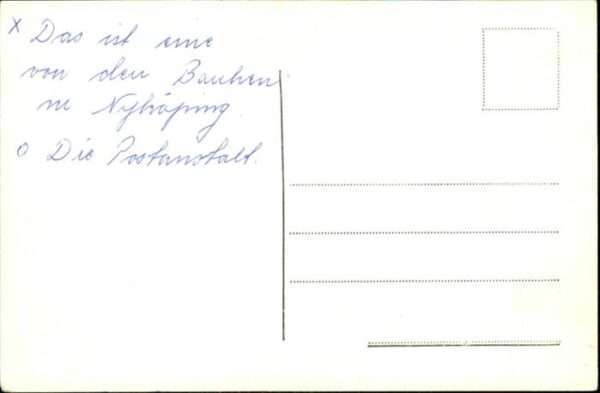 x Das ist eine
von den Banken
in Nyköping.
o Die Postanstalt.